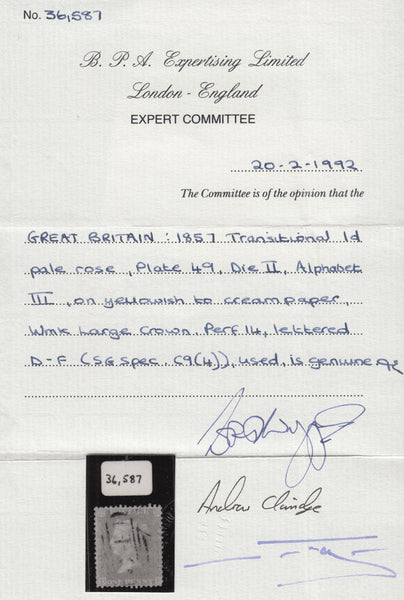 No. 36,587
B. P. A. Expertising Limited
London - England
EXPERT COMMITTEE
20-2-1992
The Committee is of the opinion that the
GREAT BRITAIN : 1857 Transitional 1d
pale rose, Plate 49, Die II, Alphabet
III, on yellowish to cream paper,
Wmk Large Crown, Perf 14, lettered
D-F (SG Spec. C9(4)), used, is genuine
36,587
Andrew Claridge
ONE PENNY